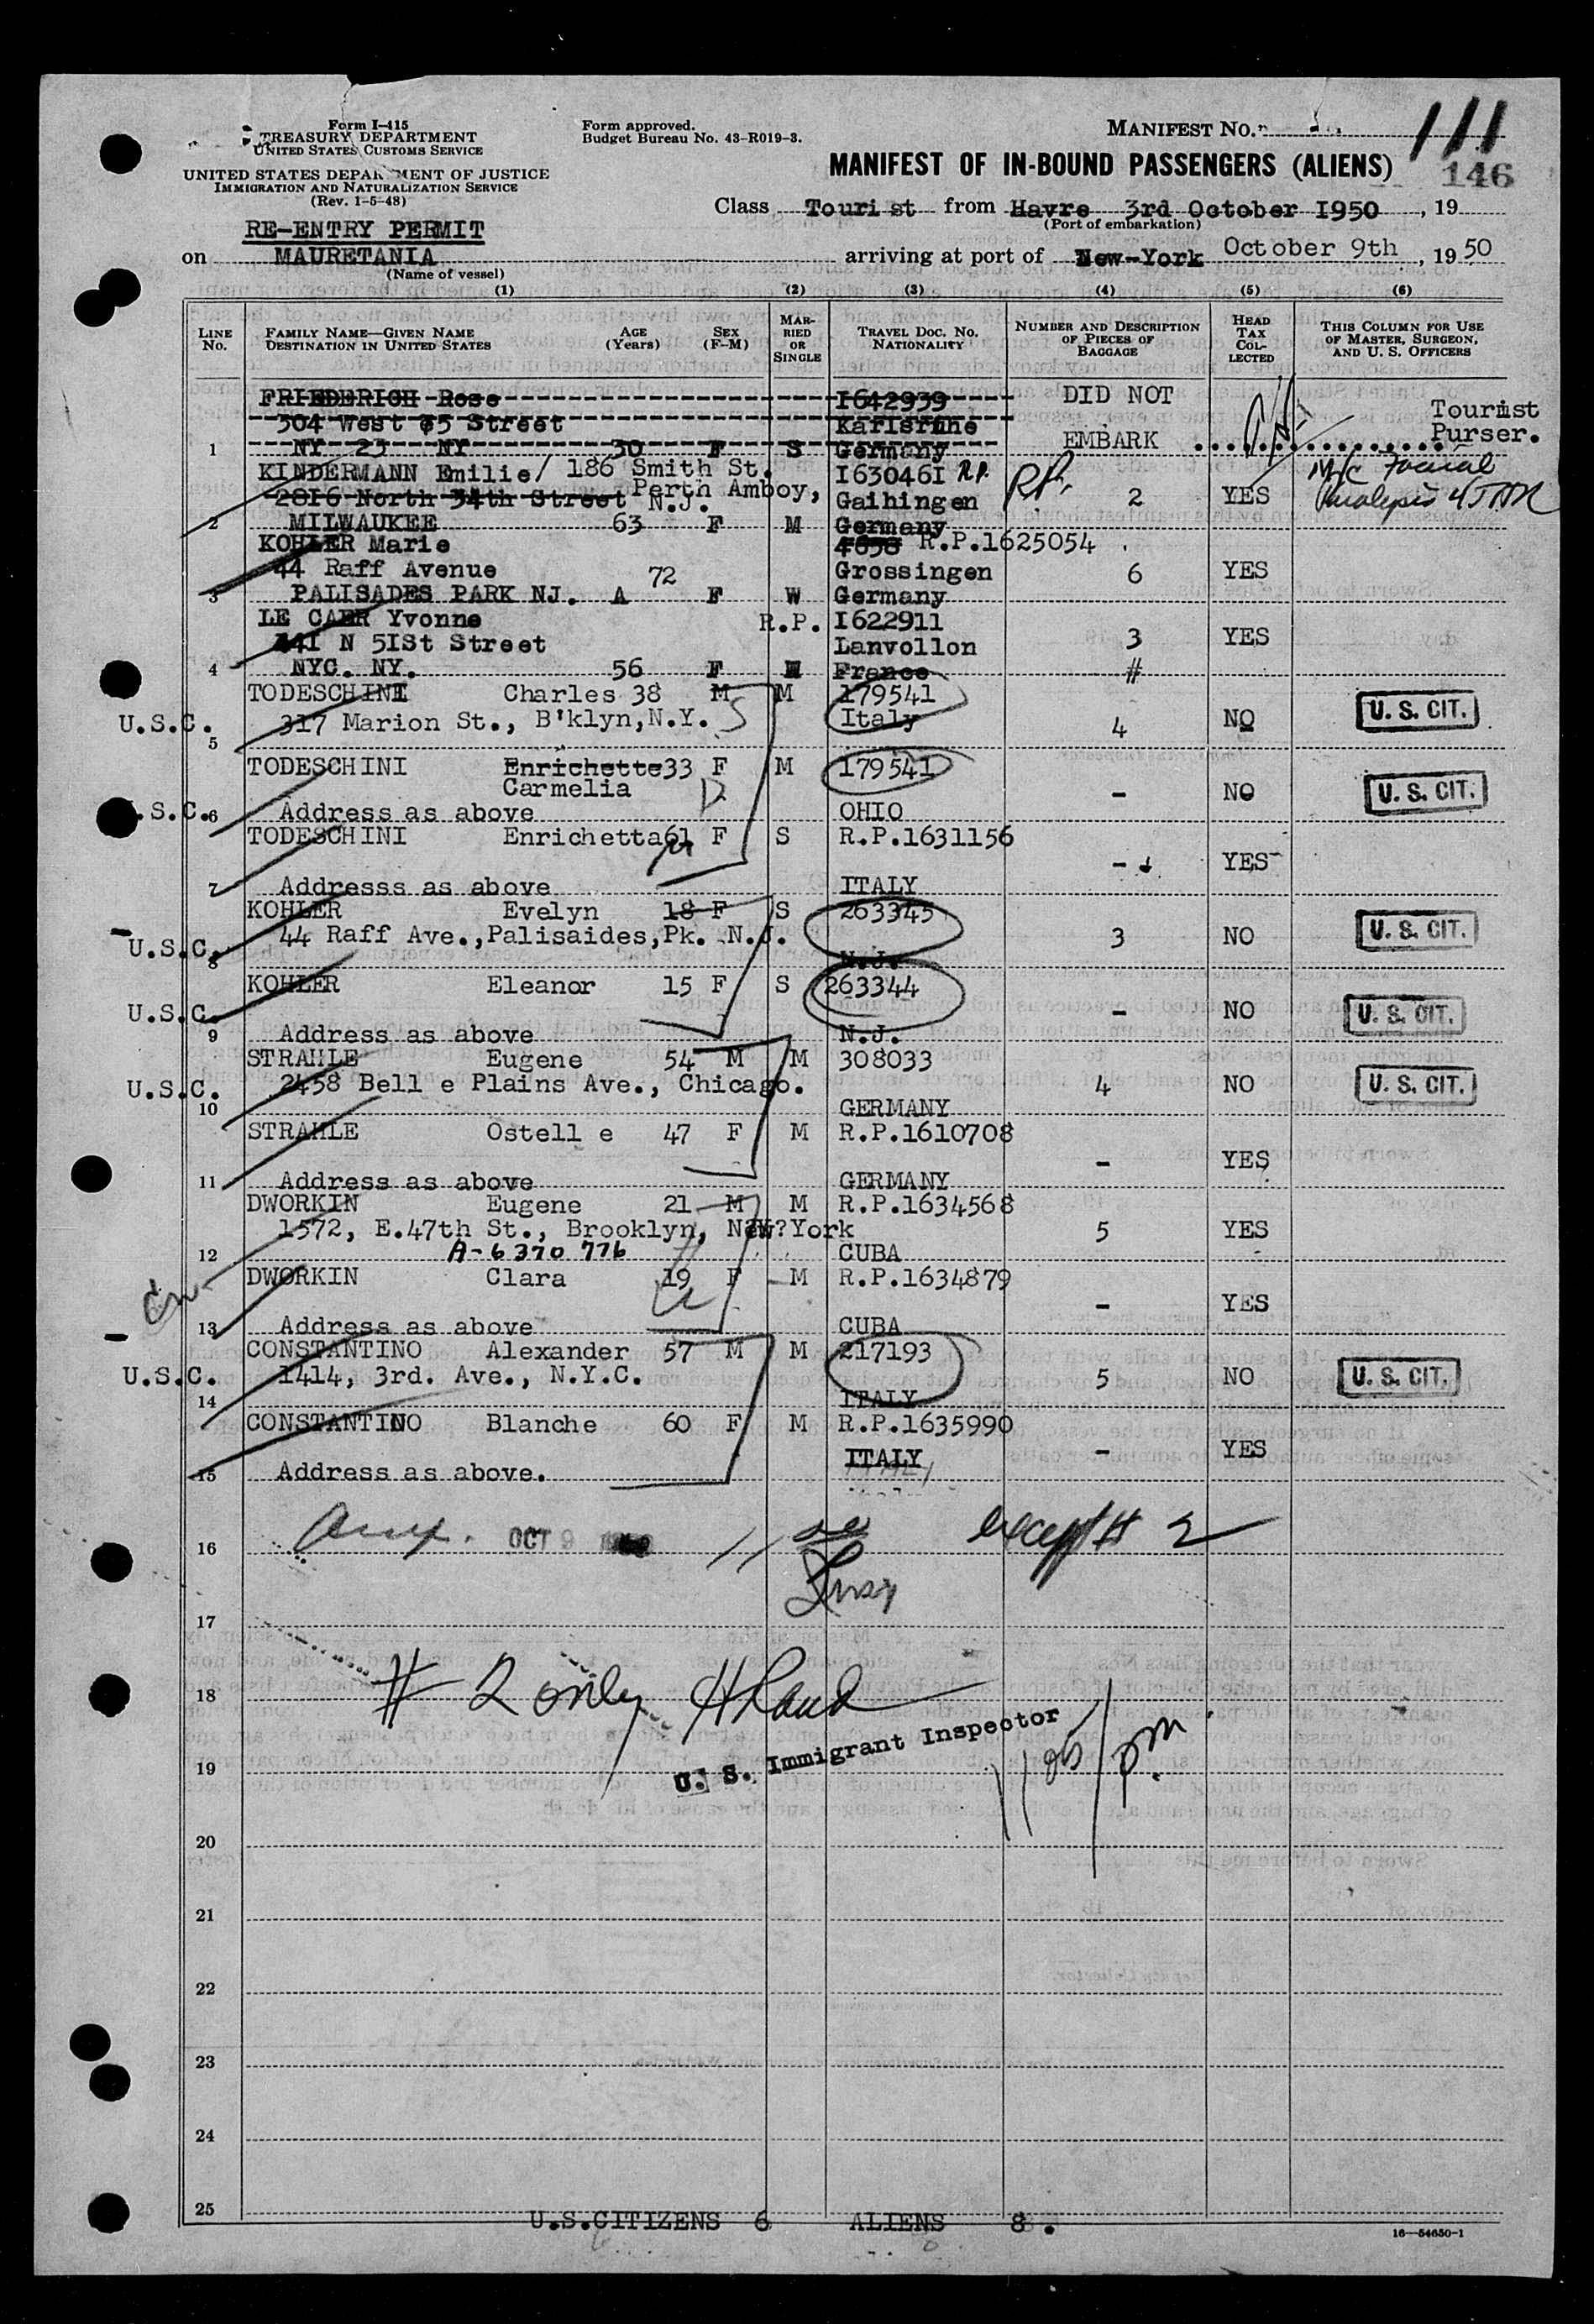 Form I-415
TREASURY DEPARTMENT
UNITED STATES CUSTOMS SERVICE
UNITED STATES DEPARTMENT OF JUSTICE
IMMIGRATION AND NATURALIZATION SERVICE
(Rev. 1-5-48)
Form approved.
Budget Bureau No. 43-R019-3.
MANIFEST NO.
111
MANIFEST OF IN-BOUND PASSENGERS (ALIENS)
146
Class Touri st from Havre 3rd October I950, 19
(Port of embarkation)
RE-ENTRY PERMIT
on MAURETANIA arriving at port of New-York October 9th, 19 50
(Name of vessel)
(1) (2) (3) (4) (5) (6)
LINE NO. FAMILY NAME—GIVEN NAME DESTINATION IN UNITED STATES AGE (Years) SEX (F-M) MARRIED OR SINGLE TRAVEL DOC. NO. NATIONALITY NUMBER AND DESCRIPTION OF PIECES OF BAGGAGE HEAD TAX COLLECTED THIS COLUMN FOR USE OF MASTER, SURGEON, AND U. S. OFFICERS
FRIEDERICH Rose I642939 DID NOT
304 West 75 Street Karlsruhe Tourist
1 NY 23 NY 30 F S Germany EMBARK Purser.
KINDERMANN Emilie/ 186 Smith St. I63046I R.P.
2816 North 34th Street Perth Amboy, N.J. Gaihingen RP. 2 YES
2 MILWAUKEE 63 F M Germany
KOHLER Marie 4698 R.P.1625054
44 Raff Avenue 72 Grossingen 6 YES
3 PALISADES PARK NJ. A F W Germany
LE CAER Yvonne R.P. I622911
441 N 5ISt Street Lanvollon 3 YES
4 NYC. NY. 56 F W France #
TODESCHINI Charles 38 M M 179541
U.S.C. 317 Marion St., B'klyn,N.Y. Italy 4 NO U. S. CIT.
5
TODESCHINI Enrichette 33 F M 179541
Carmelia - NO U. S. CIT.
.S.C. 6 Address as above OHIO
TODESCHINI Enrichetta 61 F S R.P.1631156
- YES
7 Addresss as above ITALY
KOHLER Evelyn 18 F S 263345
U.S.C. 44 Raff Ave.,Palisaides,Pk. N.J. 3 NO U. S. CIT.
8 N.J.
KOHLER Eleanor 15 F S 263344
U.S.C. - NO U. S. CIT.
9 Address as above N.J.
STRAHLE Eugene 54 M M 308033
U.S.C. 2458 Bell e Plains Ave., Chicago. 4 NO U. S. CIT.
10 GERMANY
STRAHLE Ostell e 47 F M R.P.1610708
- YES
11 Address as above GERMANY
DWORKIN Eugene 21 M M R.P.1634568
1572, E.47th St., Brooklyn, New?York 5 YES
12 A-6370 776 CUBA
DWORKIN Clara 19 F M R.P.1634879
- YES
13 Address as above CUBA
CONSTANTINO Alexander 57 M M 217193
U.S.C. 1414, 3rd. Ave., N.Y.C. 5 NO U. S. CIT.
14 ITALY
CONSTANTINO Blanche 60 F M R.P.1635990
- YES
15 Address as above. ITALY
16 OCT 9 except # 2
17
18 # 2 only
U. S. Immigrant Inspector
19 pm
20
21
22
23
24
25
U.S.CITIZENS 6 ALIENS 8 .
16—54650-1